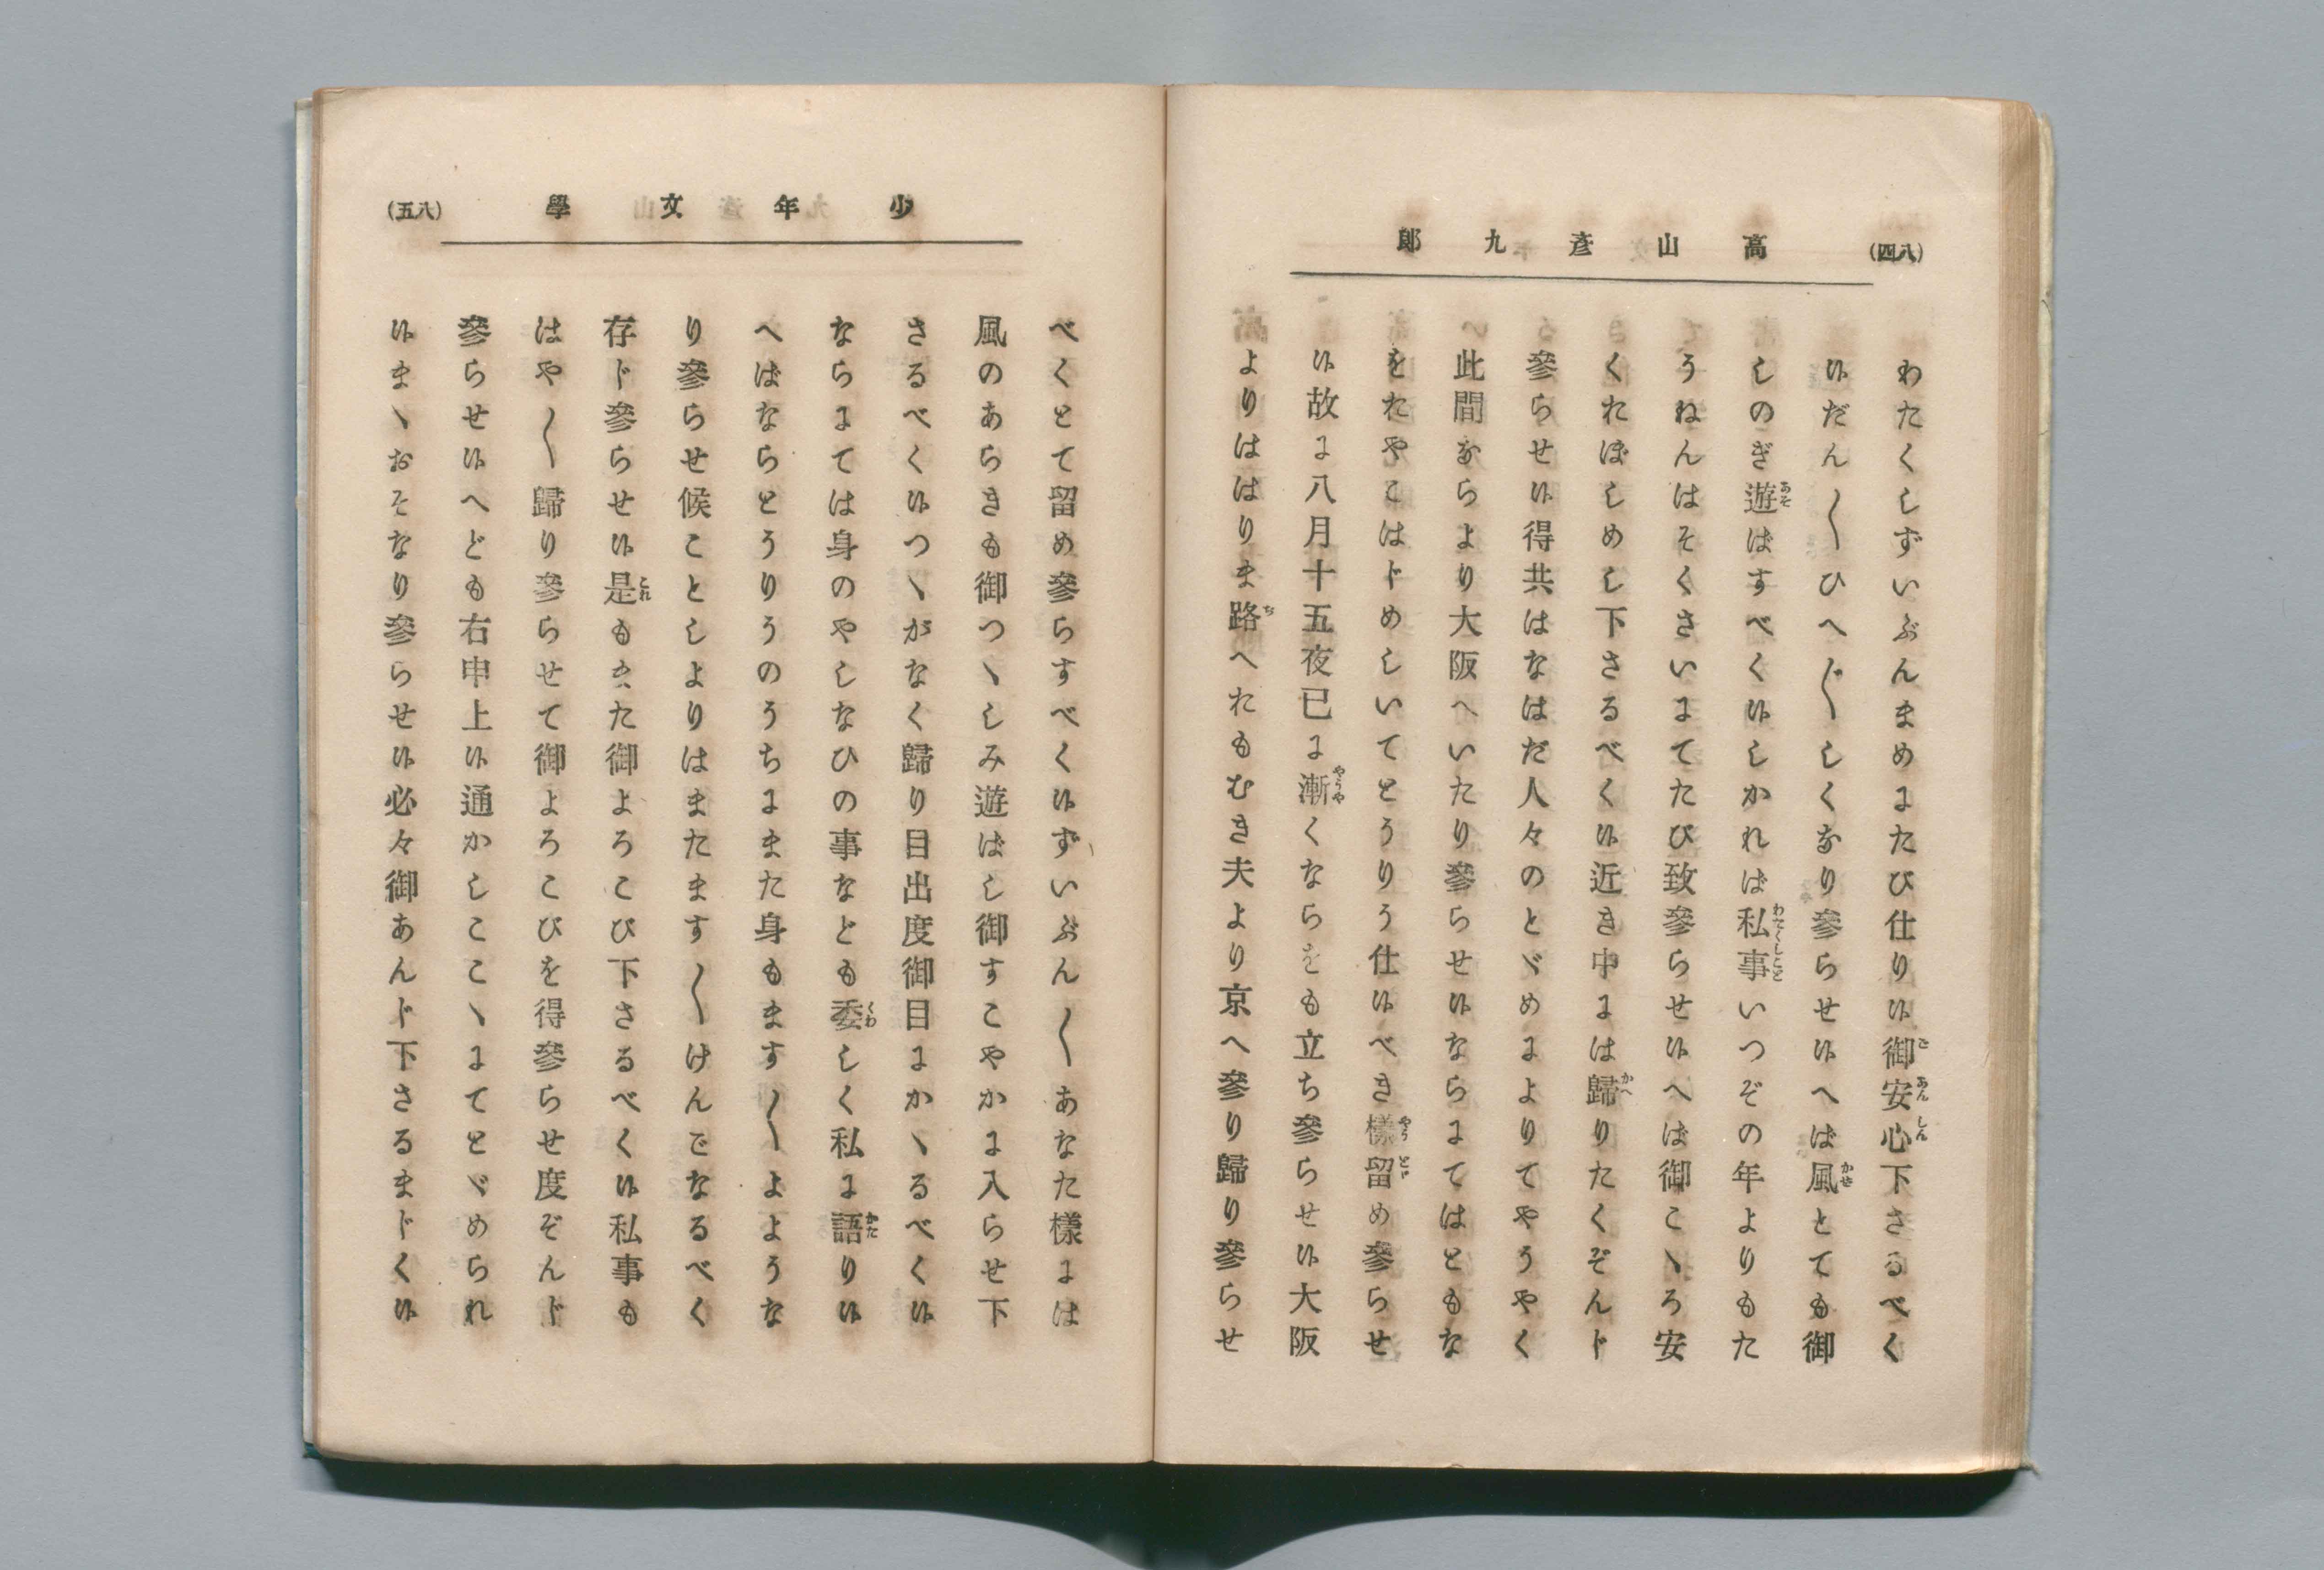 (八四)
高山彦九郎
わたくしずいぶんまめにたび仕り候御安心下さるべく
候だん〱ひへ〲しくなり參らせ候へば風とても御
しのぎ遊ばすべく候しかれば私事いつぞの年よりもた
うねんはそくさいにてたび致參らせ候へば御こゝろ安
くおぼしめし下さるべく候近き中には歸りたくぞんじ
參らせ候得共はなはだ人々のとゞめによりてやうやく
此間ならより大阪へいたり參らせ候ならにてはともな
をおやこはじめしいてとうりう仕候べき樣留め參らせ
候故に八月十五夜已に漸くならをも立ち參らせ候大阪
よりははりま路へおもむき夫より京へ參り歸り參らせ
(八五)
少年文學
べくとて留め參らすべく候ずいぶん〱あなた樣には
風のあらきも御つゝしみ遊ばし御すこやかに入らせ下
さるべく候つゝがなく歸り目出度御目にかゝるべく候
ならにては身のやしなひの事なとも委しく私に語り候
へばならとうりうのうちにまた身もます〱よような
り參らせ候ことしよりはまたます〱けんごなるべく
存じ參らせ候是もまた御よろこび下さるべく候私事も
はや〱歸り參らせて御よろこびを得參らせ度ぞんじ
參らせ候へども右申上候通かしここゝにてとゞめられ
候まゝおそなり參らせ候必々御あんじ下さるまじく候